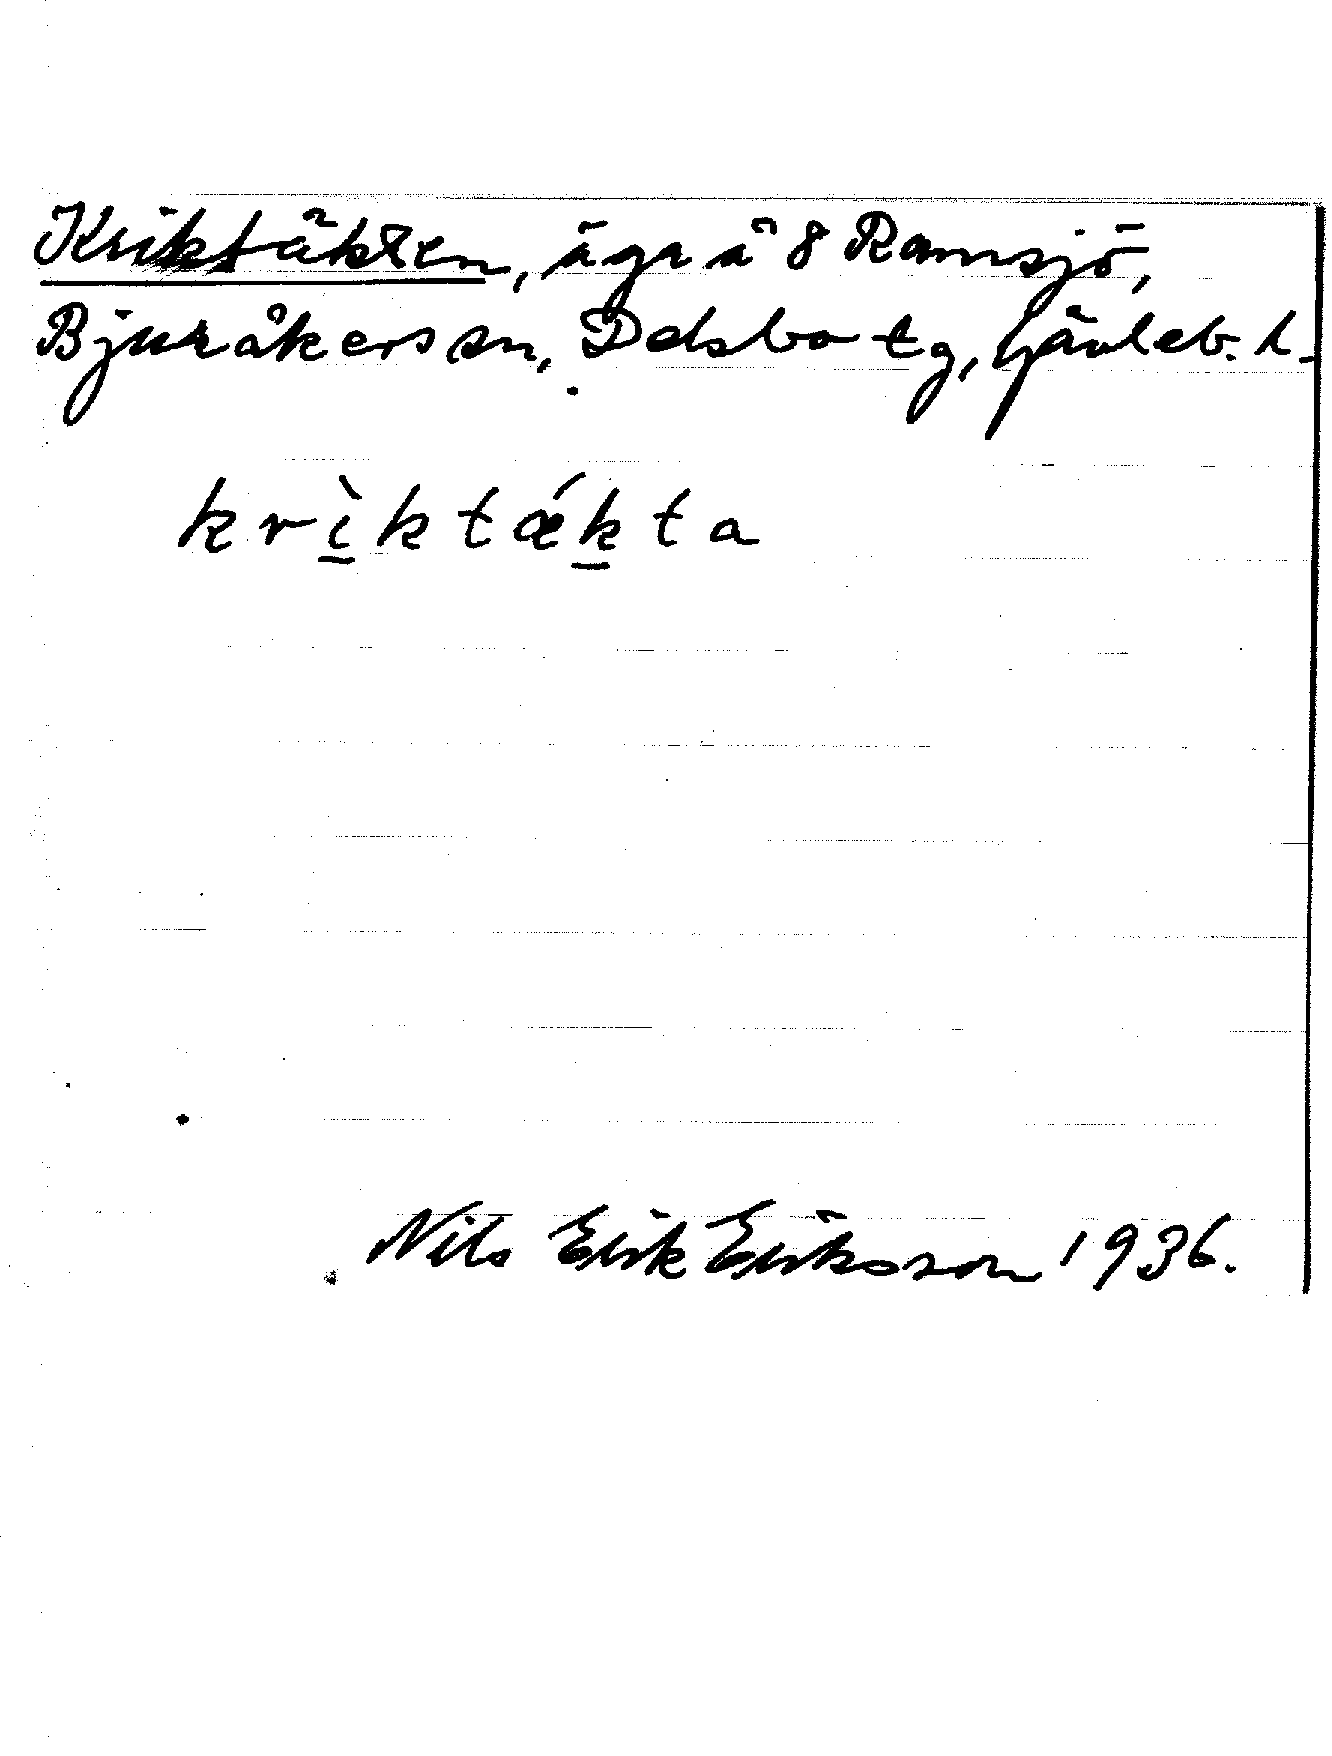 Kriktäkten, äga å 8 Ramsjö,
Bjuråkers sn, Delsbo tg, Gävleb. l.
krìktǽkta
Nils Erik Eriksson 1936.